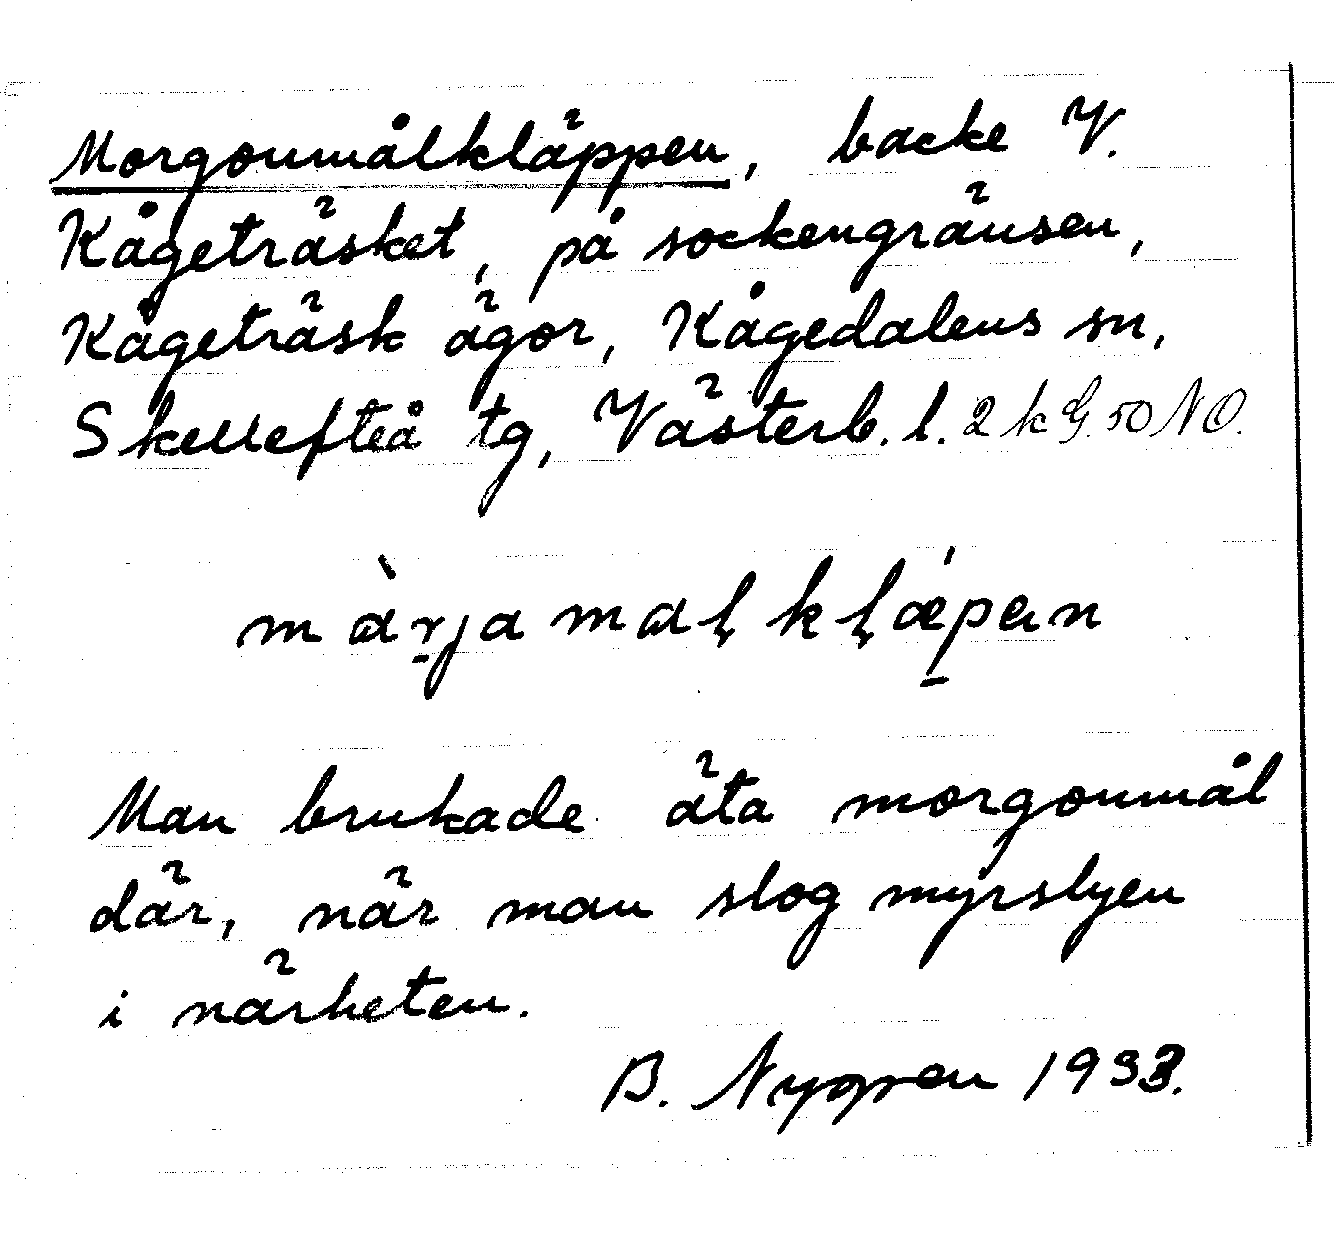 Morgonmålkläppen, backe V.
Kågeträsket, på sockengränsen,
Kågeträsk ägor, Kågedalens sn,
Skellefteå tg, Västerb. l. 2 k G. 50 NO.
màr̠jamaḷkḷǽ̠pan
Man brukade äta morgonmål
där, när man slog myrslyen
i närheten.
B. Nygren 1933.